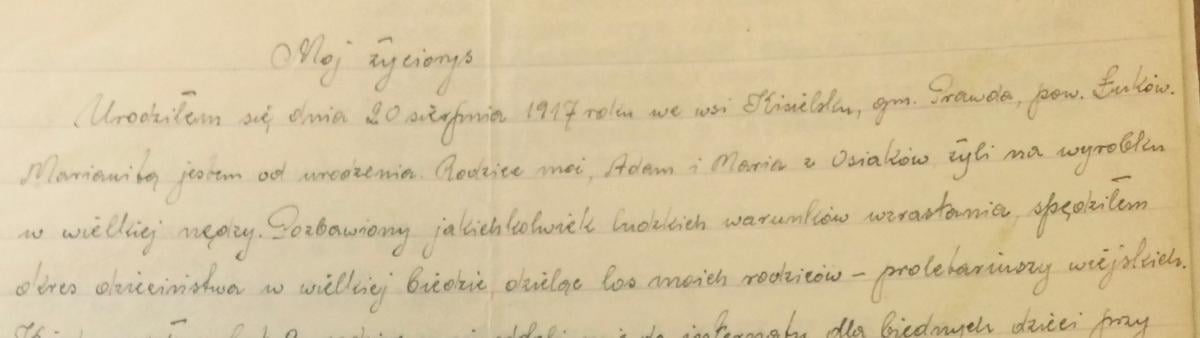 Mój życiorys
Urodziłem się dnia 20 sierpnia 1917 roku we wsi Kisielsku, gm. Prawda, pow. Łuków.
Mariawitą jestem od urodzenia. Rodzice moi, Adam i Maria z Osiaków żyli na wyrobku
w wielkiej nędzy. Pozbawiony jakichkolwiek ludzkich warunków wzrastania, spędziłem
okres dzieciństwa w wielkiej biedzie, dzieląc los moich rodziców – proletariuszy wiejskich.
do internatu dla biednych dzieci przy